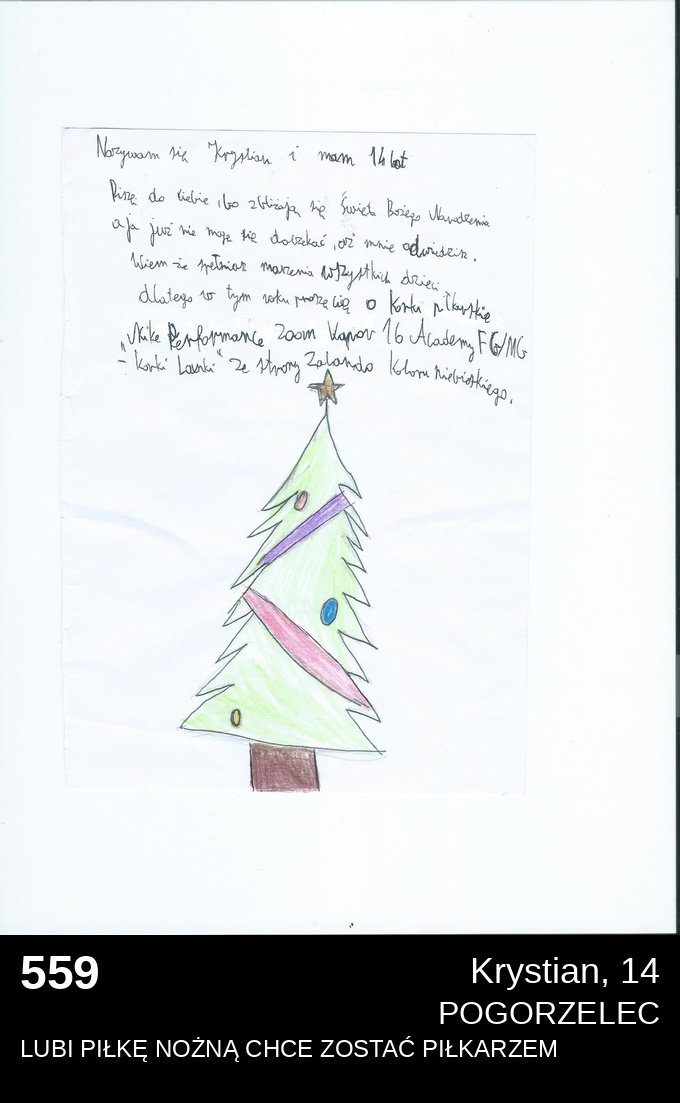 Nazywam się Krystian i mam 14 lat
Piszę do ciebie, bo zbliżają się Święta Bożego Narodzenia
a ja już nie mogę się doczekać, aż mnie odwiedzisz.
Wiem że spełniasz marzenia wszystkich dzieci,
dlatego w tym roku proszę cię o korki piłkarskie
„Nike Performance Zoom Vapor 16 Academy FG/MG
- Korki Lanki" ze strony Zalando koloru niebieskiego.
559
Krystian, 14
POGORZELEC
LUBI PIŁKĘ NOŻNĄ CHCE ZOSTAĆ PIŁKARZEM